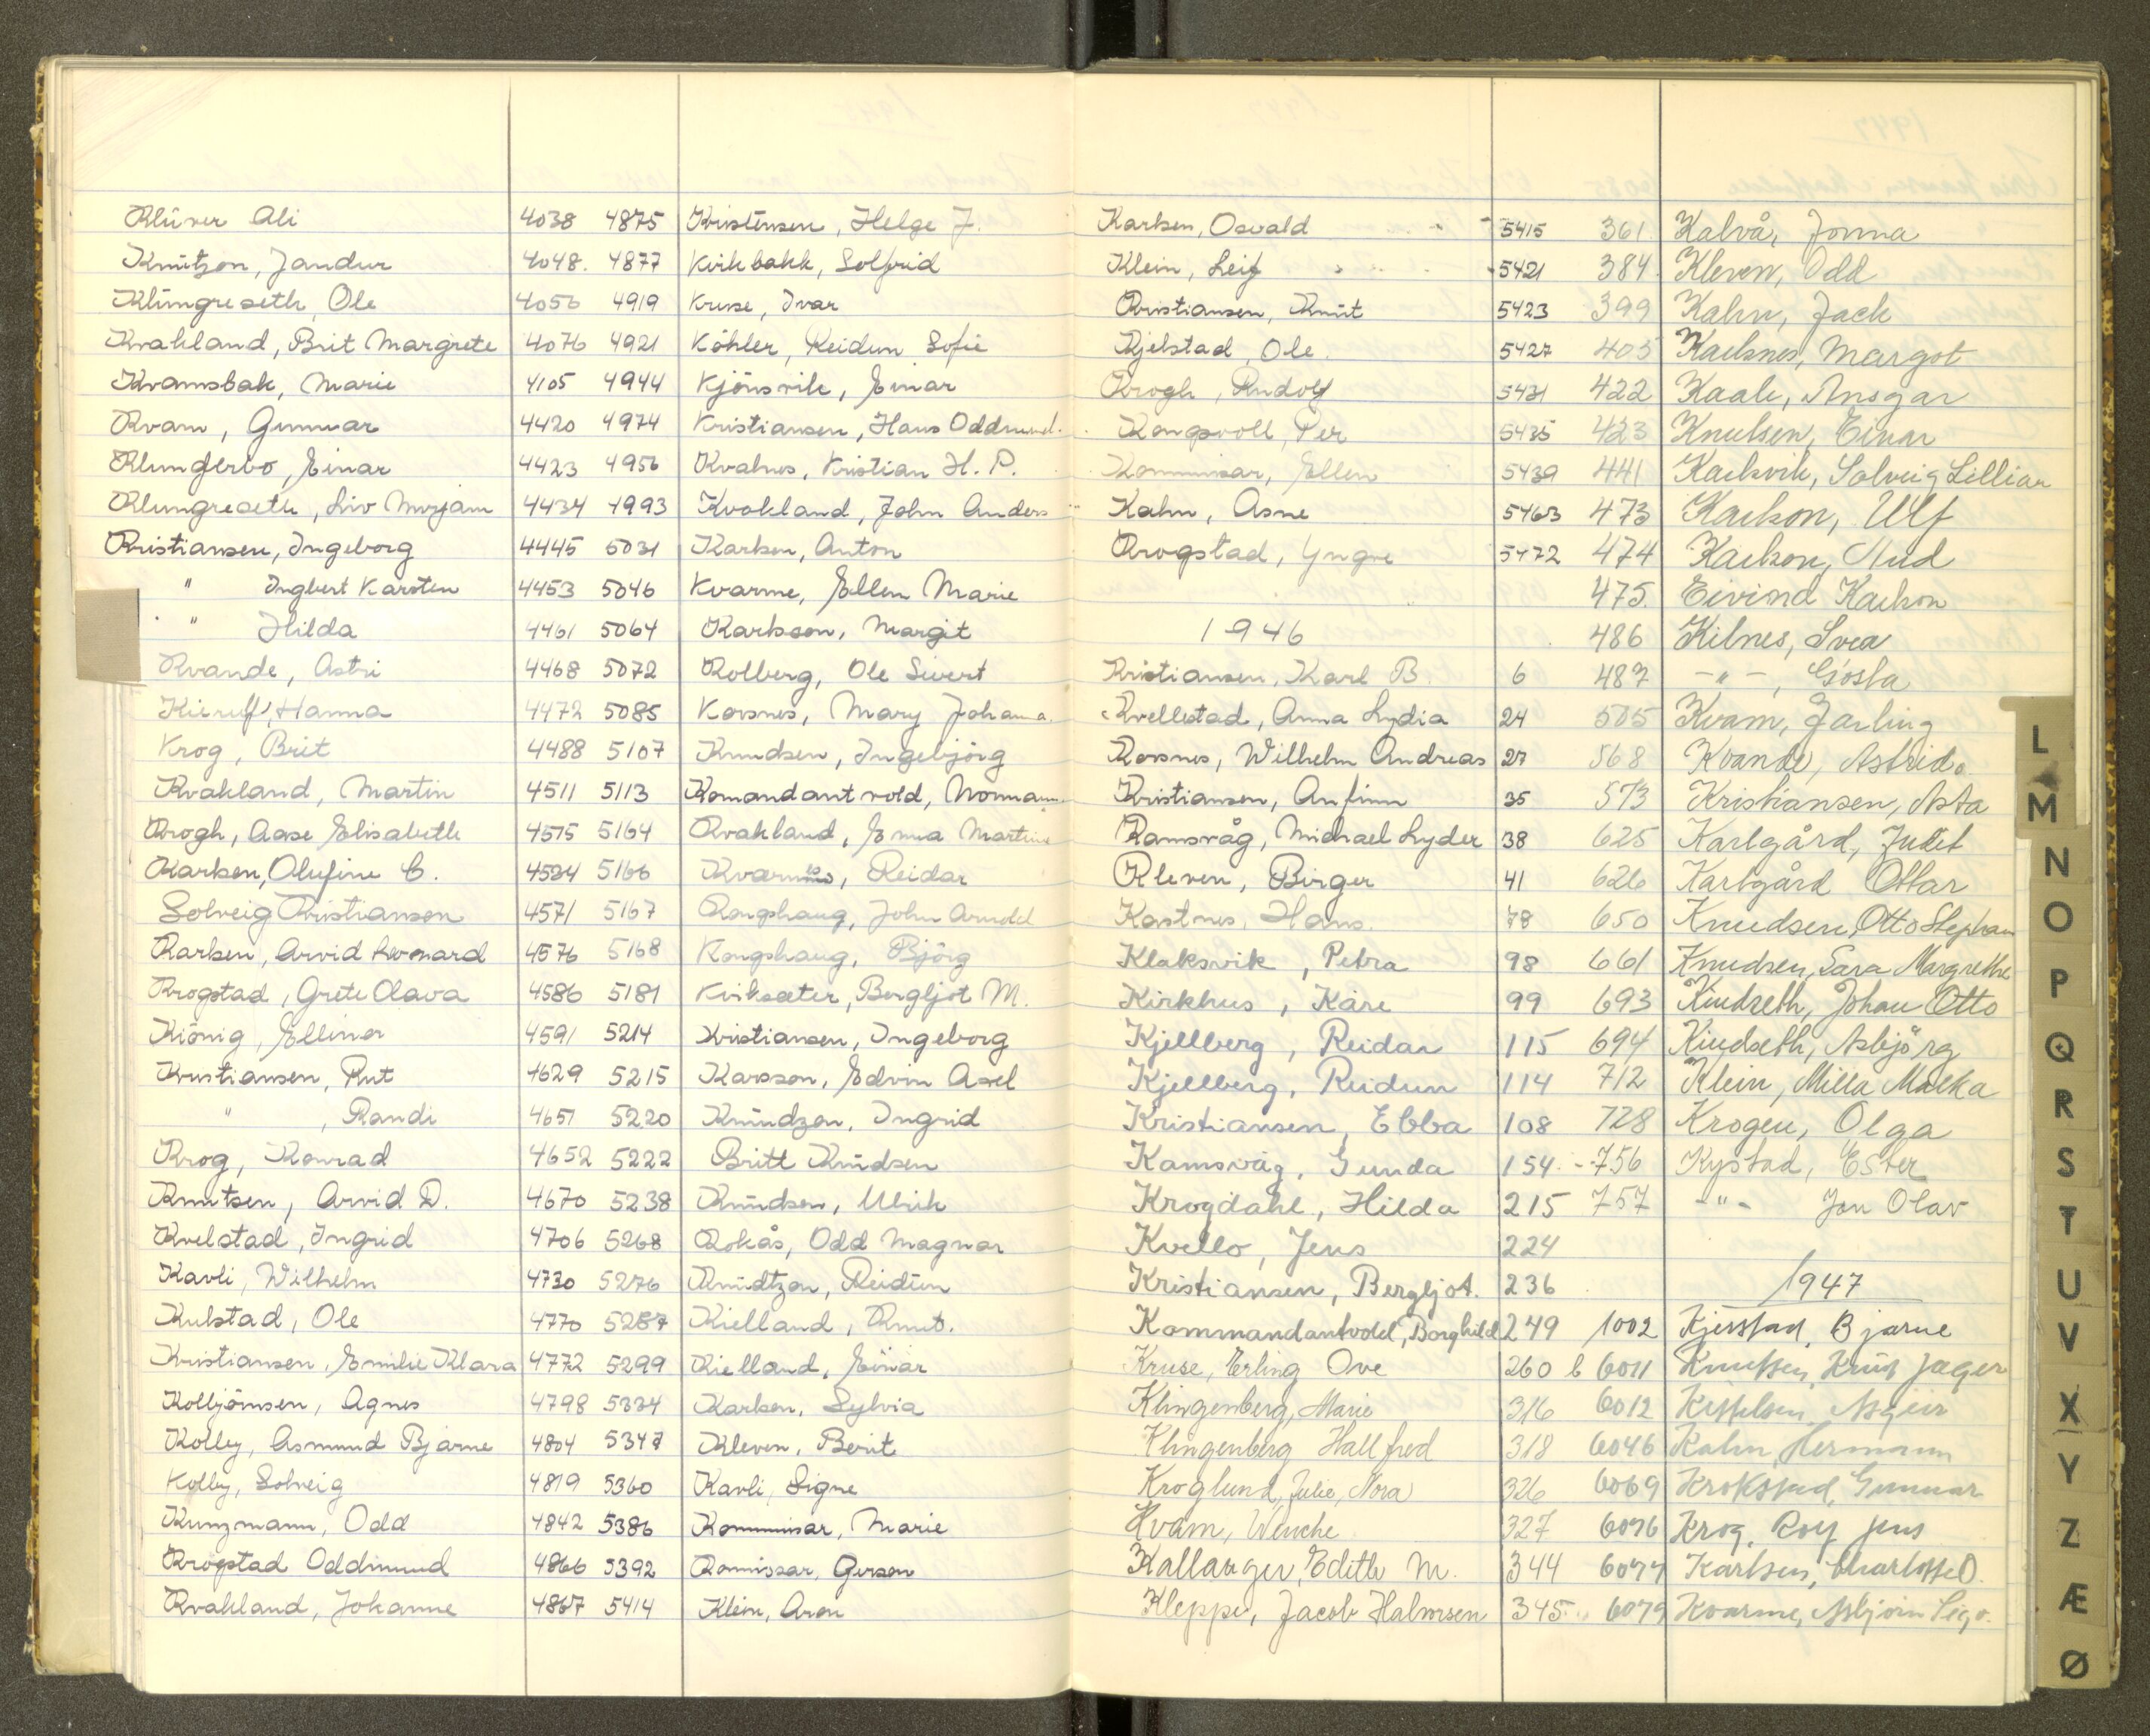 Klüver Ali 4038 4875 Kristensen, Helge J.
Knutzon, Jandur 4048 4877 Kvikbakk, Solfrid
Klungreseth, Ole 4056 4919 Kruse, Ivar
Kvakland, Brit Margrete 4076 4921 Köhler, Reidun Sofie
Kvamsbak, Marie 4105 4944 Kjönsvik, Einar
Kvam, Gunnar 4420 4974 Kristiansen, Hans
Klungerbo, Einar 4423 4956 Kvalnes, Kristian H. P.
Klungreseth, Liv Mirjam 4434 4993 Kvakland, John Anders
Kristiansen, Ingeborg 4445 5031 Karlsen, Anton
" Ingbert Karsten 4453 5046 Kvarme, Ellen Marie
" Hilda 4461 5064 Karlsson, Margit
Kvande, Astri 4468 5072 Kolberg, Ole Sivert
Hanna 4472 5085 Korsnes, Mary Johanna
Krog, Brit 4488 5107 Knudsen, Ingebjörg
Kvakland, Martin 4511 5113 Komandantvold, Normann
Krogh, Aase Elisabeth 4515 5164 Kvakland, Emma Martine
Karlsen, Olufine C. 4534 5166 Reidar
Solveig Kristiansen 4571 5167 Kongshaug, John Arndel
Karlsen, Arvid Leonard 4576 5168 Kongshaug, Björg
Krogstad, Grete Olava 4586 5181 Kviksæter, Bergljot M.
Kiönig, Ellinor 4591 5214 Kristiansen, Ingeborg
Kristiansen, Rut 4629 5215 Karsson, Edvin Axel
" , Randi 4651 5220 Knudzon, Ingrid
Krog, Konrad 4652 5222 Britt Knudsen
Knutsen, Arvid D. 4670 5238 Knudsen, Ulrik
Kvelstad, Ingrid 4706 5268 Kokås, Odd Magnar
Kavli, Wilhelm 4730 5276 Knudtzon, Reidun
Kulstad, Ole 4770 5287 Kielland, Knut.
Kristiansen, Emilie Klara 4772 5299 Kielland, Einar
Kolbjörnsen, Agnes 4798 5334 Karlsen, Sylvia
Kolby, Asmund Bjarne 4804 5347 Kleven, Berit
Kolby, Solveig 4819 5360 Kavli, Signe
Kunzmann, Odd 4842 5386 Kommisar, Marie
Krogstad Oddmund 4866 5392 Komissar, Gerson
Kvakland, Johanne 4867 5414 Klein, Aron
Karlsen, Osvald 5415 361 Kalvå, Jonna
Klein, Leif 5421 384 Kleven, Odd
Kristiansen, Knut 5423 399 Kahn, Jack
Kjelstad, Ole 5427 405 Karlsnes, Margot
Krogh, Rudolf 5431 422 Kaale, Ansgar
Kongsvoll, Per 5435 423 Knutsen, Einar
Kommisar, Ellen 5439 441 Solveig Lillian
Kahn, Asne 5463 473 Karlson, Ulf
Krogstad, Yngve 5472 474 Karlson, Aud
475 Eivind Karlson
1946 486 Kilnes, Svea
Kristiansen, Karl B. 6 487 -"-, Gösta
Kvellestad, Anna Lydia 24 505 Kvam, Jarling
Korsnes, Wilhelm Andreas 27 568 Kvande, Astrid
Kristiansen, Anfinn 35 573 Kristiansen, Asta
Ramsvåg, Michael Lyder 38 625 Karlgård, Judit
Kleven, Birger 41 626 Karlgård Ottar
Kastnes, Hans 78 650 Knudsen, Otto Stephan
Klaksvik, Petra 98 661 Knudsen, Sara Margrethe
Kirkhus, Kåre 99 693 Kindseth, Johan Otto
Kjellberg, Reidar 115 694 Kindseth, Asbjörg
Kjellberg, Reidun 114 712 Klein, Milla Malka
Kristiansen, Ebba 108 728 Krogen, Olga
Kamsvåg, Gunda 154 756 Kystad, Ester
Krogdahl, Hilda 215 757 -"- Jon Olav
Kvello, Jens 224
Kristiansen, Bergljot. 236 1947
Kommandantvold, Borghild 249 1002 Kjerstad, Bjarne
Kruse, Erling Ove 260 b 6011 Knutsen, Knut Jæger
Klingenberg, Marie 316 6012 Kittelsen, Asgeir
Klingenberg Hallfred 318 6046 Kahn, Hermann
Kroglund, Julie, Nora 326 6069 Krokstad, Gunnar
Kvam, Wenche 327 6076 Krog, Roy Jens
Kallanger, Edith M. 344 6077 Karlsen, Charlotte O.
Kleppe, Jacob Halvorsen 345 6079 Kvarme, Asbjørn Sigv.
L
M
N
O
P
Q
R
S
T
U
V
X
Y
Z
Æ
Ø